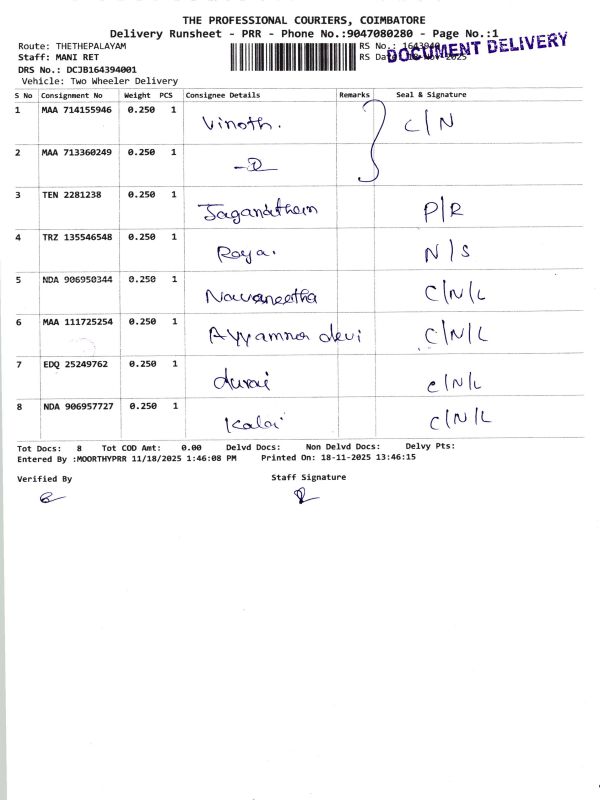 THE PROFESSIONAL COURIERS, COIMBATORE
Delivery Runsheet - PRR - Phone No.:9047080280 - Page No.:1
Route: THETHEPALAYAM RS No.:
Staff: MANI RET RS Date 2025
DOCUMENT DELIVERY
DRS No.: DCJB164394001
Vehicle: Two Wheeler Delivery
S No Consignment No Weight PCS Consignee Details Remarks Seal & Signature
1 MAA 714155946 0.250 1 Vinoth. C/N
2 MAA 713360249 0.250 1
3 TEN 2281238 0.250 1 Jaganathan P/R
4 TRZ 135546548 0.250 1 Roya. N/S
5 NDA 906950344 0.250 1 Navaneetha C/N/L
6 MAA 111725254 0.250 1 Ayyamna devi C/N/L
7 EDQ 25249762 0.250 1 durai C/N/L
8 NDA 906957727 0.250 1 Kalai C/N/L
Tot Docs: 8 Tot COD Amt: 0.00 Delvd Docs: Non Delvd Docs: Delvy Pts:
Entered By :MOORTHYPRR 11/18/2025 1:46:08 PM Printed On: 18-11-2025 13:46:15
Verified By Staff Signature